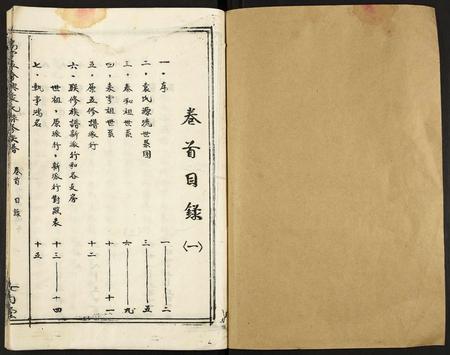 卷首目錄（一）
一．序 一——二
二．袁氏源流世系圖 三——五
三．泰和祖世系 六——九
四．表字祖世系 十——十一
五．原五修譜派行 十二
六．联修族譜新派行和各支房
世祖．原派行．新派行對照表 十三——十四
七．執事鴻名 十五
卷首 目錄